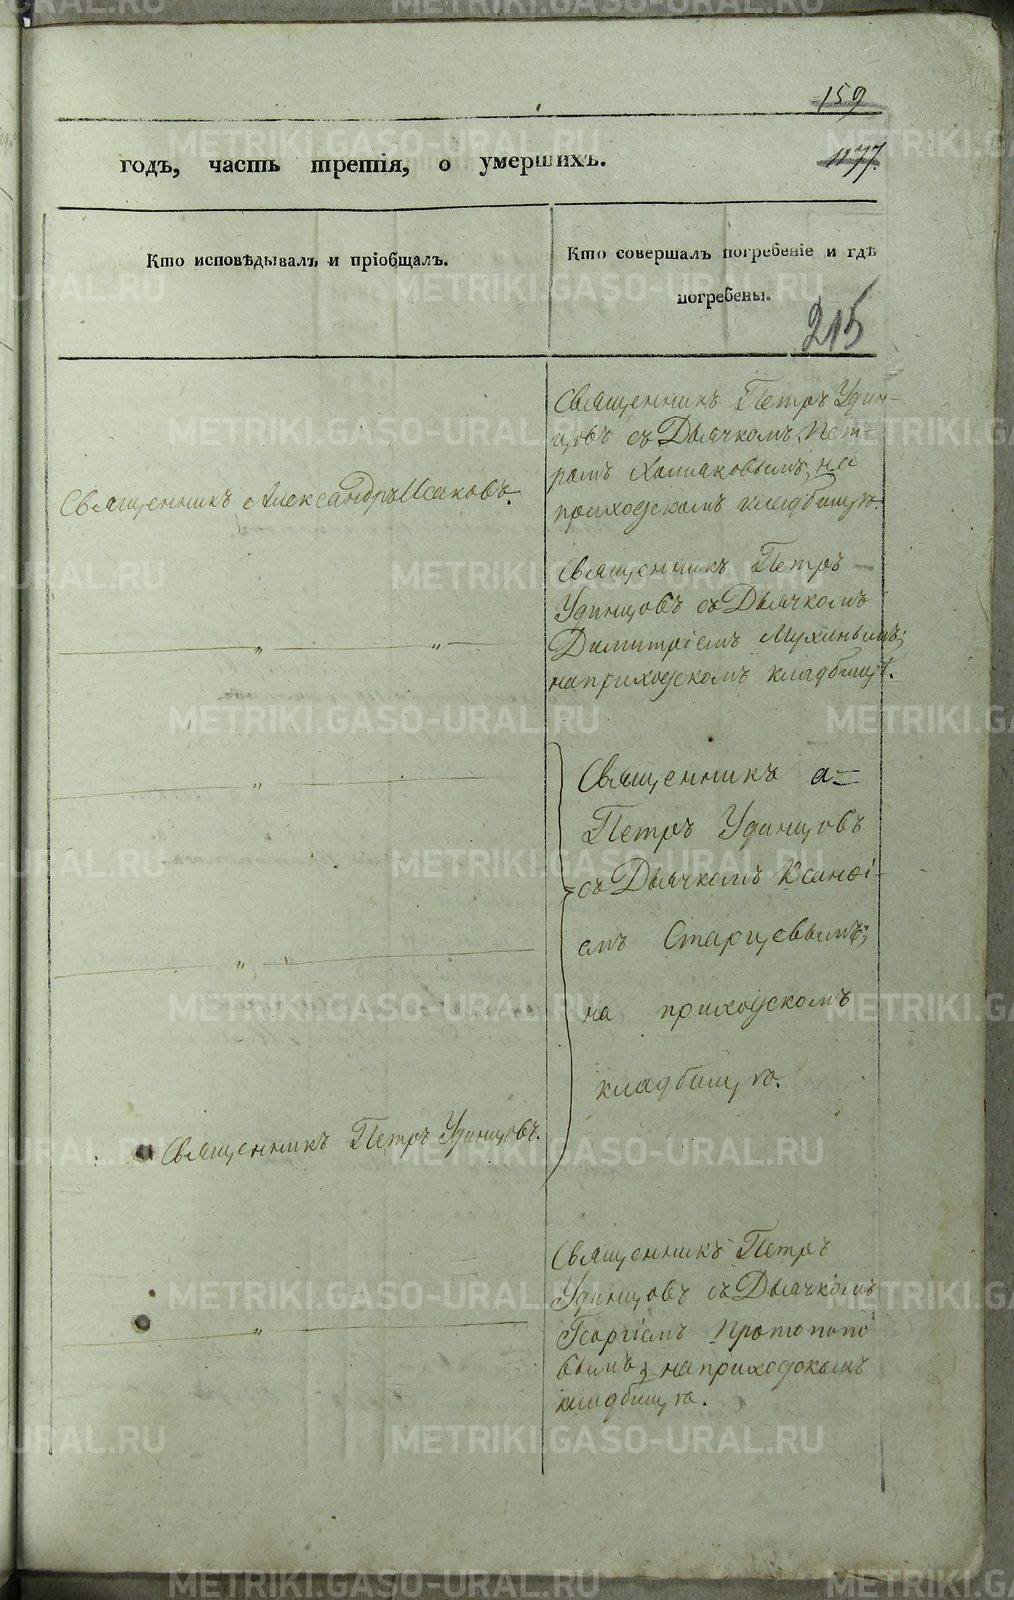 159
1177.
годъ, часть третія, о умершихъ.
Кто исповѣдывалъ и пріобщалъ.
Кто совершалъ погребеніе и гдѣ
погребены.
215
Священникъ Александръ Исаковъ.
Священникъ Петръ Удин-
цовъ съ Дьячкомъ Пет-
ромъ Хлмаковымъ, на
приходскомъ кладбищѣ.
Священникъ Петръ
Удинцовъ съ Дьячкомъ
Димитріемъ Мухинымъ;
на приходскомъ кладбищѣ.
„ „
„
Священникъ
Петръ Удинцовъ
съ Дьячкомъ Ксанфі-
емъ Старцевымъ;
на приходскомъ
кладбищѣ.
„ „
Священникъ Петръ Удинцовъ.
Священникъ Петръ
Удинцовъ съ Дьячкомъ
Георгіемъ Протопопо
вымъ, на приходскомъ
кладбищѣ.
„
METRIKI.GASO-URAL.RU